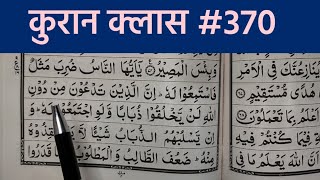 कुरान क्लास #370
وَبِئْسَ الْمَصِيْرُ يٰۤاَيُّهَا النَّاسُ ضُرِبَ مَثَلٌ
فَاسْتَمِعُوْا لَهٗ اِنَّ الَّذِيْنَ تَدْعُوْنَ مِنْ دُوْنِ
اللّٰهِ لَنْ يَّخْلُقُوْا ذُبَابًا وَّلَوِ اجْتَمَعُوْا
اِنْ يَّسْلُبْهُمُ الذُّبَابُ شَيْئًا لَّا
مِنْهُ ضَعُفَ الطَّالِبُ وَالْمَطْلُوْبُ مَا قَدَرُوا
يُنَازِعُنَّكَ فِي الْاَمْرِ
هُدًى مُّسْتَقِيْمٍ
اَعْلَمُ بِمَا تَعْمَلُوْنَ
فِيْمَا كُنْتُمْ فِيْهِ
اَنَّ اللّٰهَ يَعْلَمُ مَا فِي